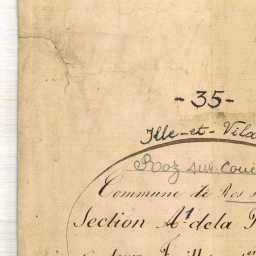 - 35 -
Ille-et-Vila
Roz sur Coue
Commune de Ros s
Section A1 de la P